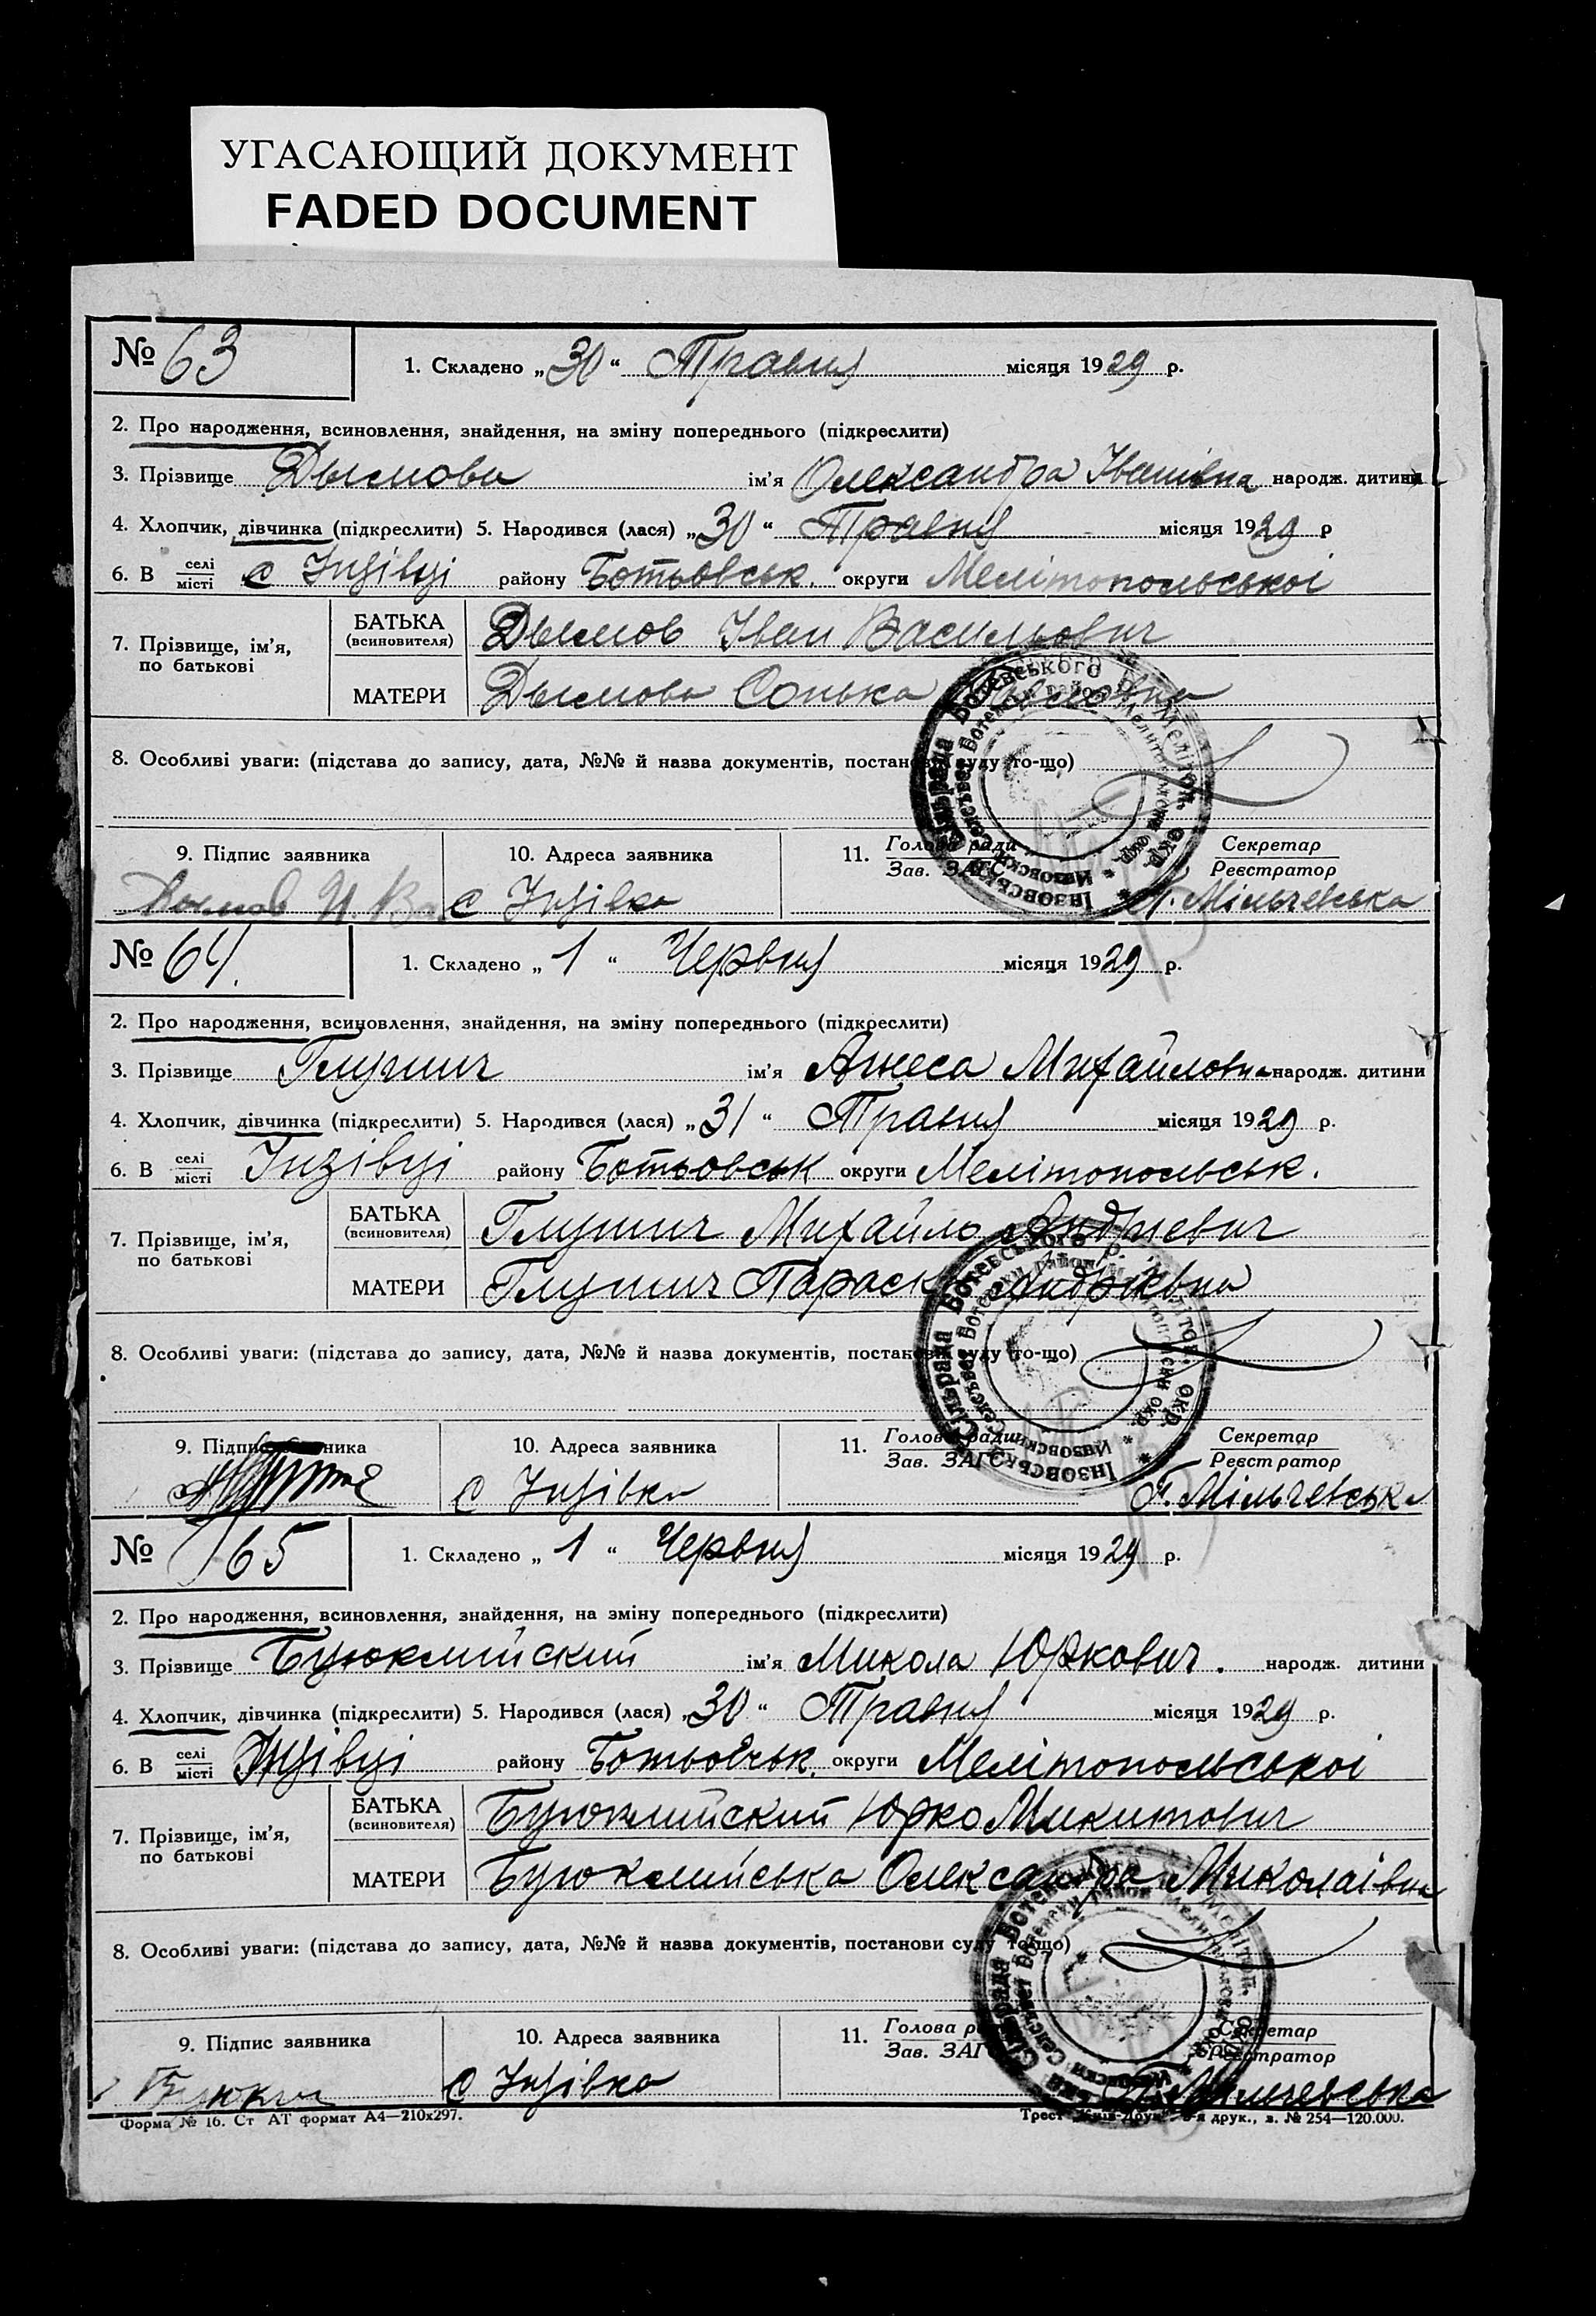 УГАСАЮЩИЙ ДОКУМЕНТ
FADED DOCUMENT
№ 63
1. Складено „30“ Травня місяця 1929 р.
2. Про народження, всиновлення, знайдення, на зміну попереднього (підкреслити)
3. Прізвище Дымова ім'я Олександра Іванівна народж. дитини
4. Хлопчик, дівчинка (підкреслити) 5. Народився (лася) „30“ Травня місяця 1929 р
6. В селі місті с Інзівці району Ботьовськ. округи Мелітопольської
7. Прізвище, ім'я, по батькові
БАТЬКА (всиновителя) Дымов Іван Васильович
МАТЕРИ Дымова Сонька
8. Особливі уваги: (підстава до запису, дата, №№ й назва документів, постанови суду то-що)
9. Підпис заявника
10. Адреса заявника
11. Голова ради Зав. ЗАГС
Секретар Реєстратор
Дымов И. Ва
с Інзівка
Мільчевська
№ 64.
1. Складено „1“ Червня місяця 1929 р.
2. Про народження, всиновлення, знайдення, на зміну попереднього (підкреслити)
3. Прізвище Глушич ім'я Агнеса Михайловна народж. дитини
4. Хлопчик, дівчинка (підкреслити) 5. Народився (лася) „31“ Травня місяця 1929 р.
6. В селі місті Інзівці району Ботьовськ округи Мелітопольськ.
7. Прізвище, ім'я, по батькові
БАТЬКА (всиновителя) Глушич Михайло Андрієвич
МАТЕРИ Глушич Параск Андріївна
8. Особливі уваги: (підстава до запису, дата, №№ й назва документів, постанови суду то-що)
9. Підпис заявника
10. Адреса заявника
11. Голова ради Зав. ЗАГС
Секретар Реєстратор
с Інзівка
Г. Мільчевська
№ 65
1. Складено „1“ Червня місяця 1929 р.
2. Про народження, всиновлення, знайдення, на зміну попереднього (підкреслити)
3. Прізвище Буюклийский ім'я Микола Юркович. народж. дитини
4. Хлопчик, дівчинка (підкреслити) 5. Народився (лася) „30“ Травня місяця 1929 р.
6. В селі місті Інзівці району Ботьовськ. округи Мелітопольської
7. Прізвище, ім'я, по батькові
БАТЬКА (всиновителя) Буюклийский Юрко Микитович
МАТЕРИ Буюклийська Олександра Миколаівна
8. Особливі уваги: (підстава до запису, дата, №№ й назва документів, постанови суду то-що)
9. Підпис заявника
10. Адреса заявника
11. Голова ради Зав. ЗАГС
Секретар Реєстратор
с Інзівка
Мільчевська
Форма № 16. Ст АТ формат А4—210х297.
Трест „Київ-Друк“ друк., з. № 254—120.000.